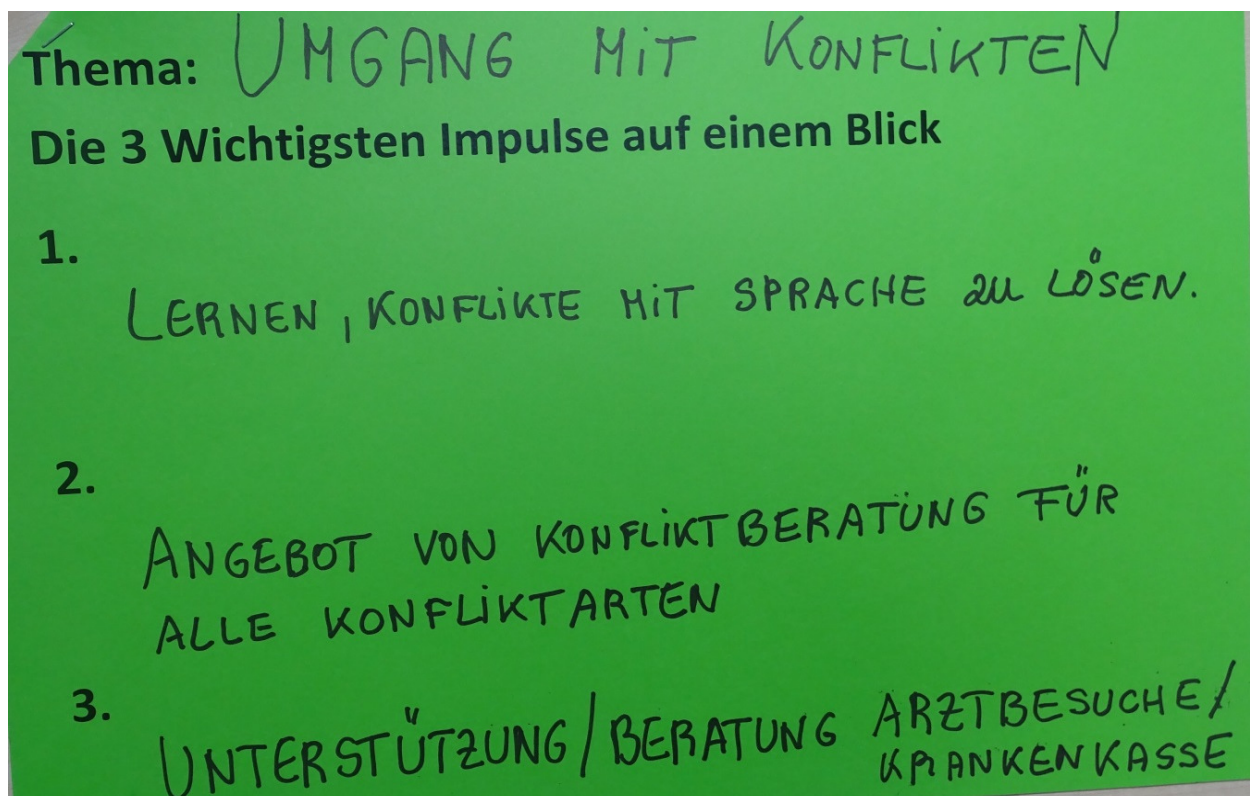 Thema: UMGANG MiT KONFLiKTEN
Die 3 Wichtigsten Impulse auf einem Blick
1.
LERNEN, KONFLiKTE MiT SPRACHE ZU LÖSEN.
2.
ANGEBOT VON KONFLiKTBERATUNG FÜR
ALLE KONFLiKTARTEN
3.
UNTERSTÜTZUNG/BERATUNG ARZTBESUCHE/
KRANKENKASSE